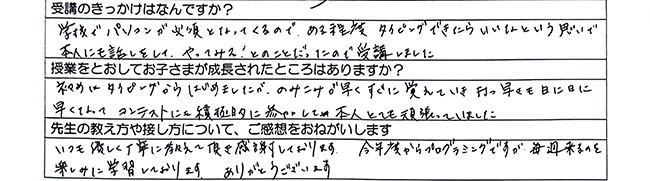 受講のきっかけはなんですか?
学校でパソコンが必須となってくるので、ある程度 タイピングできたらいいなという思いで
本人にも話しをして、やってみえ!とのことだったので受講しました
授業をとおしてお子さまが成長されたところはありますか?
初めは タイピングからはじめましたが、のみこみが早くすぐに覚えていき 打つ早さも日に日に
早くなって コンテストにも積極的に参加して 本人とても頑張っていました
先生の教え方や接し方について、ご感想をおねがいします
いつも優しく丁寧に教えて頂き感謝しております。 今年度からプログラミングですが、毎週来るのを
楽しみに学習しております。 ありがとうございます